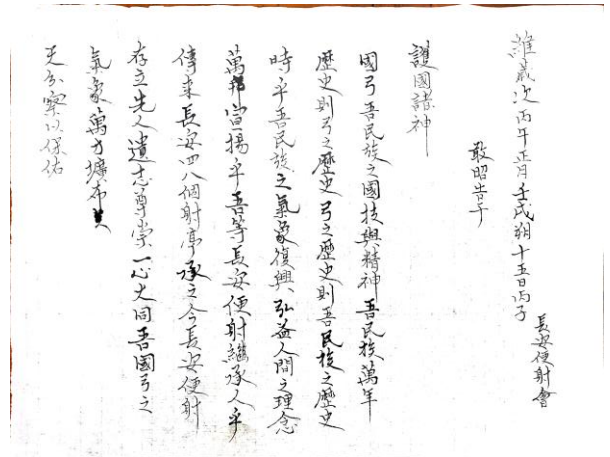 維歲次丙午正月壬戌朔十五日丙子
長安便射會
敢昭告于
護國諸神
國弓吾民族之國技與精神 吾民族萬年
歷史則弓之歷史 弓之歷史則吾民族之歷史
時乎吾民族之氣象復興 弘益人間之理念
萬邦宣揚乎 吾等長安便射繼承人乎
傳來長安四八個射亭承之今長安便射
存立先人遺志尊崇一心大同吾國弓之
氣象萬方擴布
天分察以保佑